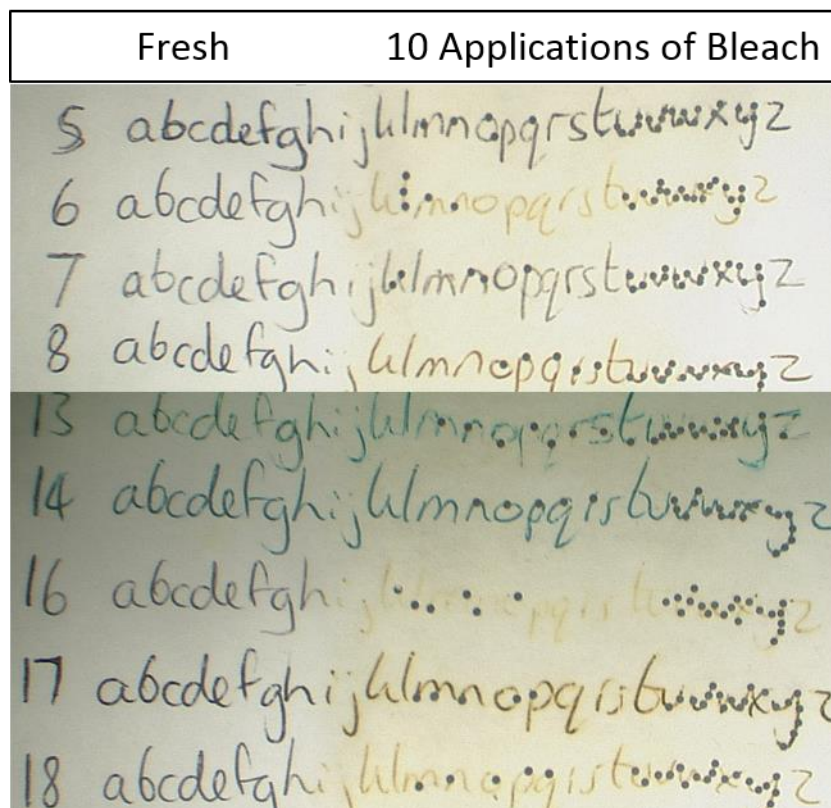 Fresh 10 Applications of Bleach
5 abcdefghijklmnopqrstuvwxyz
6 abcdefghijklmnopqrstuvwxyz
7 abcdefghijklmnopqrstuvwxyz
8 abcdefghijklmnopqrstuvwxyz
13 abcdefghijklmnopqrstuvwxyz
14 abcdefghijklmnopqrstuvwxyz
16 abcdefghijklmnopqrstuvwxyz
17 abcdefghijklmnopqrstuvwxyz
18 abcdefghijklmnopqrstuvwxyz